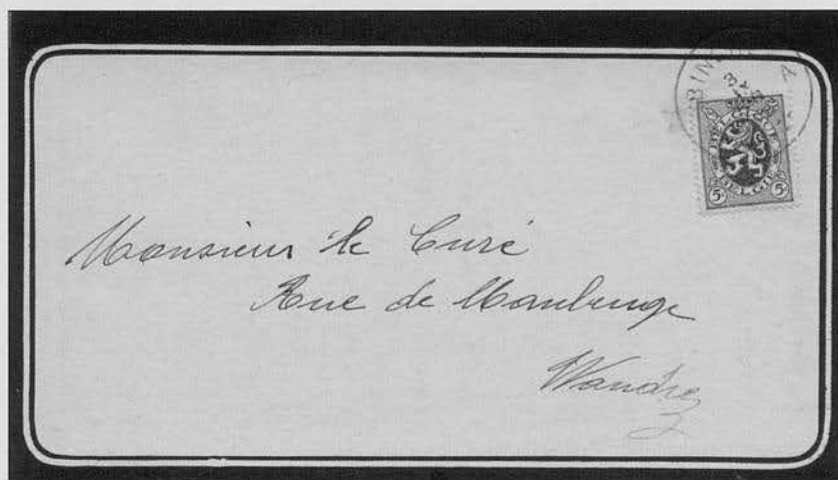 BELGIQUE
BELGIË
5 5
Monsieur le Curé
Rue de Maubeuge
Waudrez